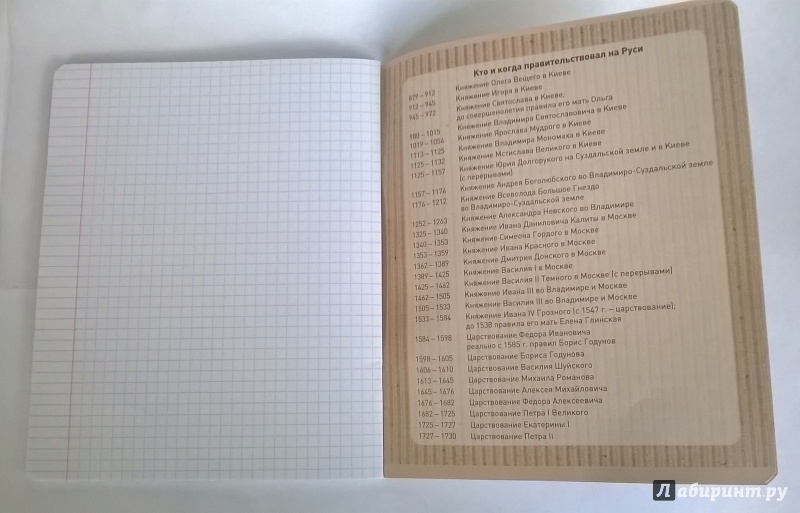 Кто и когда правительствовал на Руси
879 – 912 Княжение Олега Вещего в Киеве
912 – 945 Княжение Игоря в Киеве
945 – 972 Княжение Святослава в Киеве;
до совершенолетия правила его мать Ольга
980 – 1015 Княжение Владимира Святославовича в Киеве
1019 – 1054 Княжение Ярослава Мудрого в Киеве
1113 – 1125 Княжение Владимира Мономаха в Киеве
1125 – 1132 Княжение Мстислава Великого в Киеве
1125 – 1157 Княжение Юрия Долгорукого на Суздальской земле и в Киеве
(с перерывами)
1157 – 1174 Княжение Андрея Боголюбского во Владимиро-Суздальской земле
1176 – 1212 Княжение Всеволода Большое Гнездо
во Владимиро-Суздальской земле
1252 – 1263 Княжение Александра Невского во Владимире
1325 – 1340 Княжение Ивана Даниловича Калиты в Москве
1340 – 1353 Княжение Симеона Гордого в Москве
1353 – 1359 Княжение Ивана Красного в Москве
1362 – 1389 Княжение Дмитрия Донского в Москве
1389 – 1425 Княжение Василия I в Москве
1425 – 1462 Княжение Василия II Темного в Москве (с перерывами)
1462 – 1505 Княжение Ивана III во Владимире и Москве
1505 – 1533 Княжение Василия III во Владимире и Москве
1533 – 1584 Княжение Ивана IV Грозного (с 1547 г. – царствование);
до 1538 правила его мать Елена Глинская
1584 – 1598 Царствование Федора Ивановича
реально с 1585 г. правил Борис Годунов
1598 – 1605 Царствование Бориса Годунова
1606 – 1610 Царствование Василия Шуйского
1613 – 1645 Царствование Михаила Романова
1645 – 1676 Царствование Алексея Михайловича
1676 – 1682 Царствование Федора Алексеевича
1682 – 1725 Царствование Петра I Великого
1725 – 1727 Царствование Екатерины I
1727 – 1730 Царствование Петра II
Лабиринт.ру